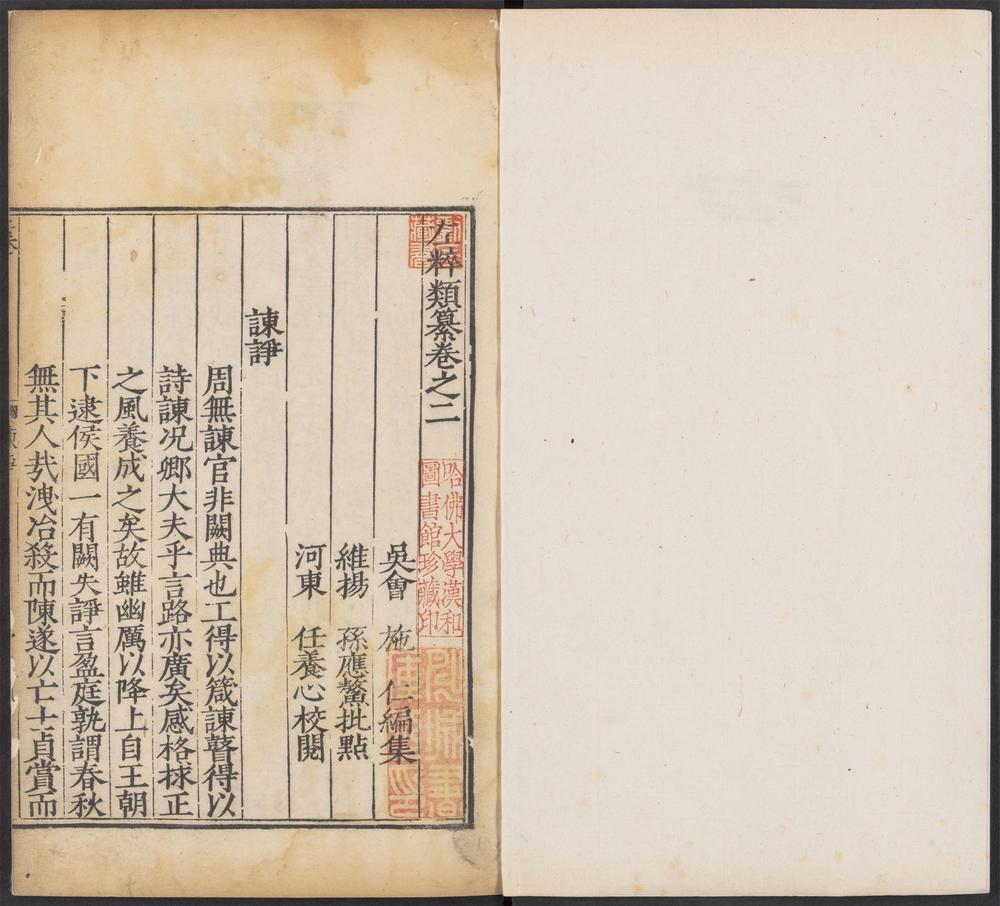 左粹類纂卷之二
哈佛大學漢和
圖書館珍藏印
吳會　施　仁編集
維揚　孫應鰲批點
河東　任養心校閱
諫諍
周無諫官非闕典也工得以箴諫瞽得以
詩諫况卿大夫乎言路亦廣矣感格捄正
之風養成之矣故雖幽厲以降上自王朝
下逮侯國一有闕失諍言盈庭孰謂春秋
無其人㢤洩冶殺而陳遂以亡士貞賞而